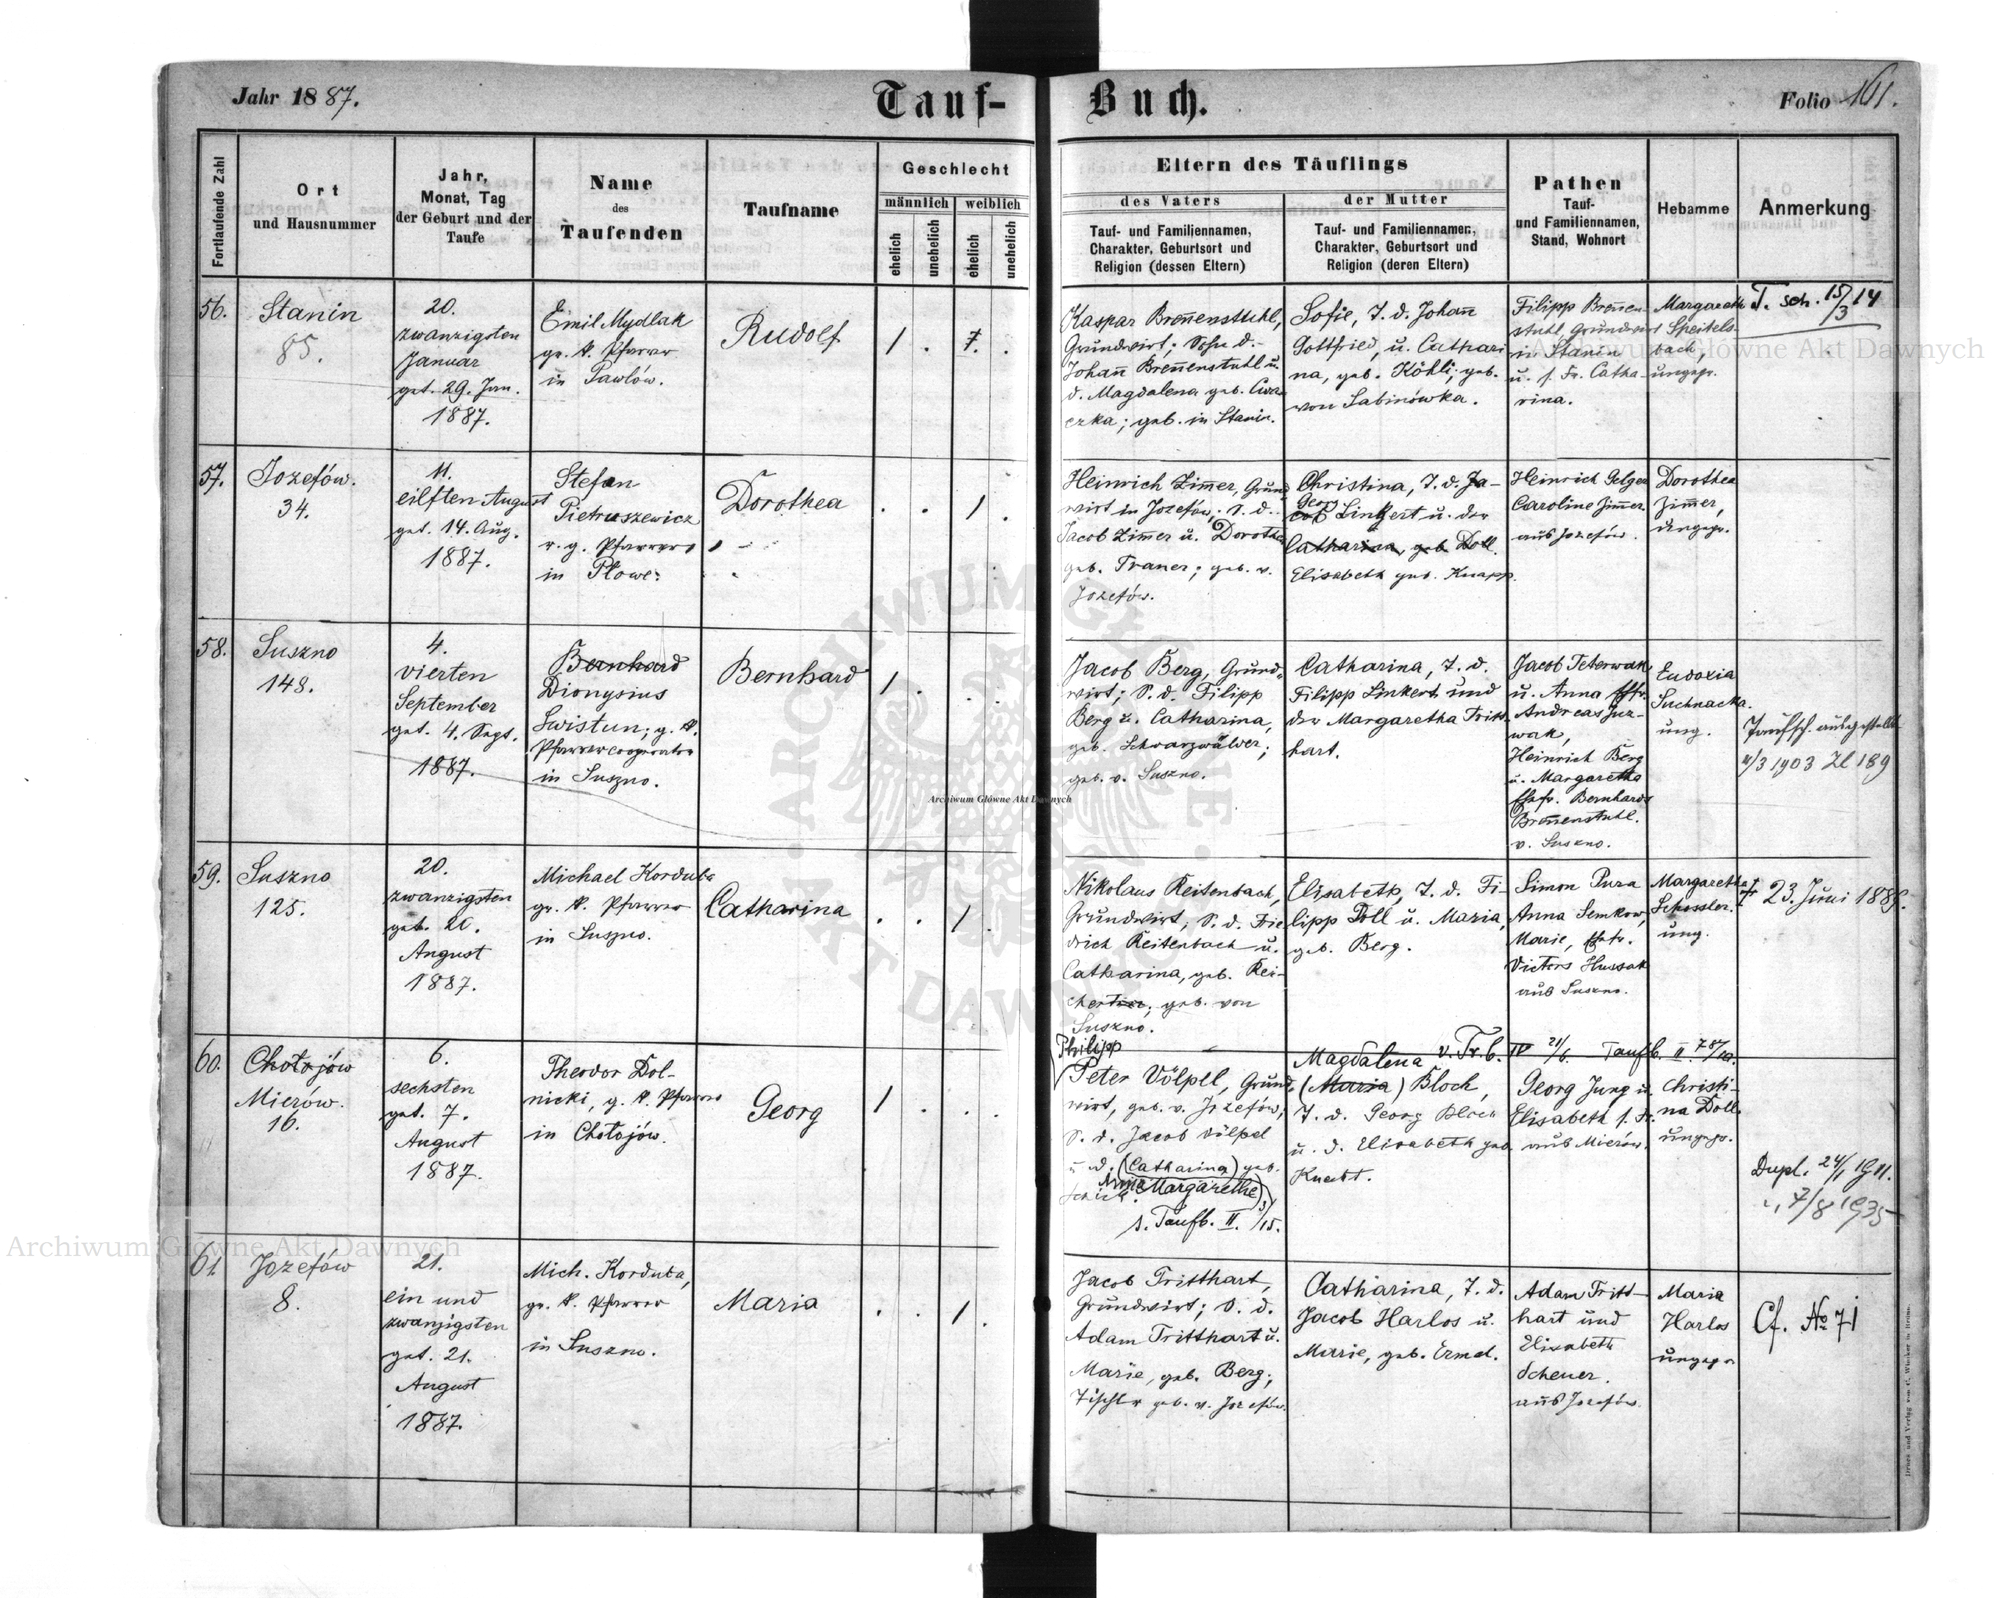 Jahr 1887.
Tauf-
Buch.
Folio 161.
Fortlaufende Zahl
Ort
und Hausnummer
Jahr,
Monat, Tag
der Geburt und der
Taufe
Name
des
Taufenden
Taufname
Geschlecht
männlich
weiblich
ehelich
unehelich
ehelich
unehelich
Eltern des Täuflings
des Vaters
Tauf- und Familiennamen,
Charakter, Geburtsort und
Religion (dessen Eltern)
der Mutter
Tauf- und Familiennamen,
Charakter, Geburtsort und
Religion (deren Eltern)
Pathen
Tauf-
und Familiennamen,
Stand, Wohnort
Hebamme
Anmerkung
56.
Stanin
85.
20.
zwanzigsten
Januar
get. 29. Jan.
1887.
Emil Mydlak
gr. k. Pfarrer
in Pawlów.
Rudolf
1 . 1 .
Kaspar Breñenstuhl,
Grundwirt; Sohn d.
Johañ Breñenstuhl u.
d. Magdalena geb.
czka; geb. in Stanin.
Sofie, T. d. Johañ
Gottfried, u. Cathari
na, geb. Köhli; geb.
von Sabinówka.
Filipp Breñen-
stuhl, Grundwirt
in Stanin
u. s. Fr. Catha-
rina.
Margareth
Speitels-
bach,
ungepr.
T. sch. 15/3 14
57.
Jozefów.
34.
11.
eilften August
get. 14. Aug.
1887.
Stefan
Pietruszewicz
r. g. Pfarrer
in Płowe.
Dorothea
. . 1 .
Heinrich Zim̄er, Grund
wirt in Jozefów; S. d.
Jacob Zim̄er u. Dorothea
geb. Traner; geb. v.
Jozefów.
Christina, T. d. Ja-
Georg
cob Linkert u. der
Catharina, geb. Doll.
Elisabeth geb. Knapp.
Heinrich Gelger
Caroline Zim̄er
aus Jozefów.
Dorothea
Zim̄er,
ungepr.
58.
Suszno
148.
4.
vierten
September
get. 4. Sept.
1887.
Bernhard
Dionysius
Swistun; g. k.
Pfarrercooperator
in Suszno.
Bernhard
1 . . .
Jacob Berg, Grund-
wirt; S. d. Filipp
Berg u. Catharina,
geb. Schwarzwälder;
geb. v. Suszno.
Catharina, T. d.
Filipp Linkert und
der Margaretha Tritt
hart.
Jacob Teterwak
u. Anna Ehfr.
Andreas Jur-
wak,
Heinrich Berg
u. Margaretha
Ehefr. Bernhards
Breñenstuhl.
v. Suszno.
Eudoxia
Suchnacka.
ung.
Taufsch. ausgestellt
11/3 1903 Zl 189
59.
Suszno
125.
20.
zwanzigsten
geb. 21.
August
1887.
Michael Korduba
gr. k. Pfarrer
in Suszno.
Catharina
. . 1 .
Nikolaus Reitenbach,
Grundwirt; S. d. Frie
drich Reitenbach u.
Catharina, geb. Rei-
chert; geb. von
Suszno.
Elisabeth, T. d. Fi-
lipp Doll u. Maria,
geb. Berg.
Simon Pura
Anna Semkow,
Marie, Ehefr.
Victors Hussak
aus Suszno.
Margaretha
Schissler.
ung.
23. Juni 1889.
60.
Chołojów
Mierów.
16.
6.
sechsten
get. 7.
August
1887.
Theodor Dol-
nicki, g. k. Pfarrer
in Chołojów.
Georg
1 . . .
Philipp
(Peter Völpel, Grund-
wirt, geb. v. Jozefów;
S. d. Jacob Völpel
u. d. (Catharina) geb.
Anna Margarethe)
s. Taufb. II. 3/15.
Magdalena v. Tr. b. IV 21/6. Taufb. II. 7
(Maria) Bloch,
T. d. Georg Bloch
u. d. Elisabeth geb.
Knecht.
Georg Jung u.
Elisabeth s. Fr.
aus Mierów.
Christi-
na Doll.
ungepr.
Dupl. 24/1 1911.
" 7/8 1935
61.
Jozefów
8.
21.
ein und
zwanzigsten
get. 21.
August
1887.
Mich. Korduba,
gr. k. Pfarrer
in Suszno.
Maria
. . 1 .
Jacob Tritthart,
Grundwirt; S. d.
Adam Tritthart u.
Marie, geb. Berg;
Tischler geb. v. Jozefów.
Catharina, T. d.
Jacob Harlos u.
Marie, geb. Ermel.
Adam Tritt-
hart und
Elisabeth
Scheuer.
aus Jozefów.
Maria
Harlos
ungepr.
Cf. No 71
Archiwum Główne Akt Dawnych
Archiwum Główne Akt Dawnych
Archiwum Główne Akt Dawnych
ARCHIWUM GŁÓWNE AKT DAWNYCH